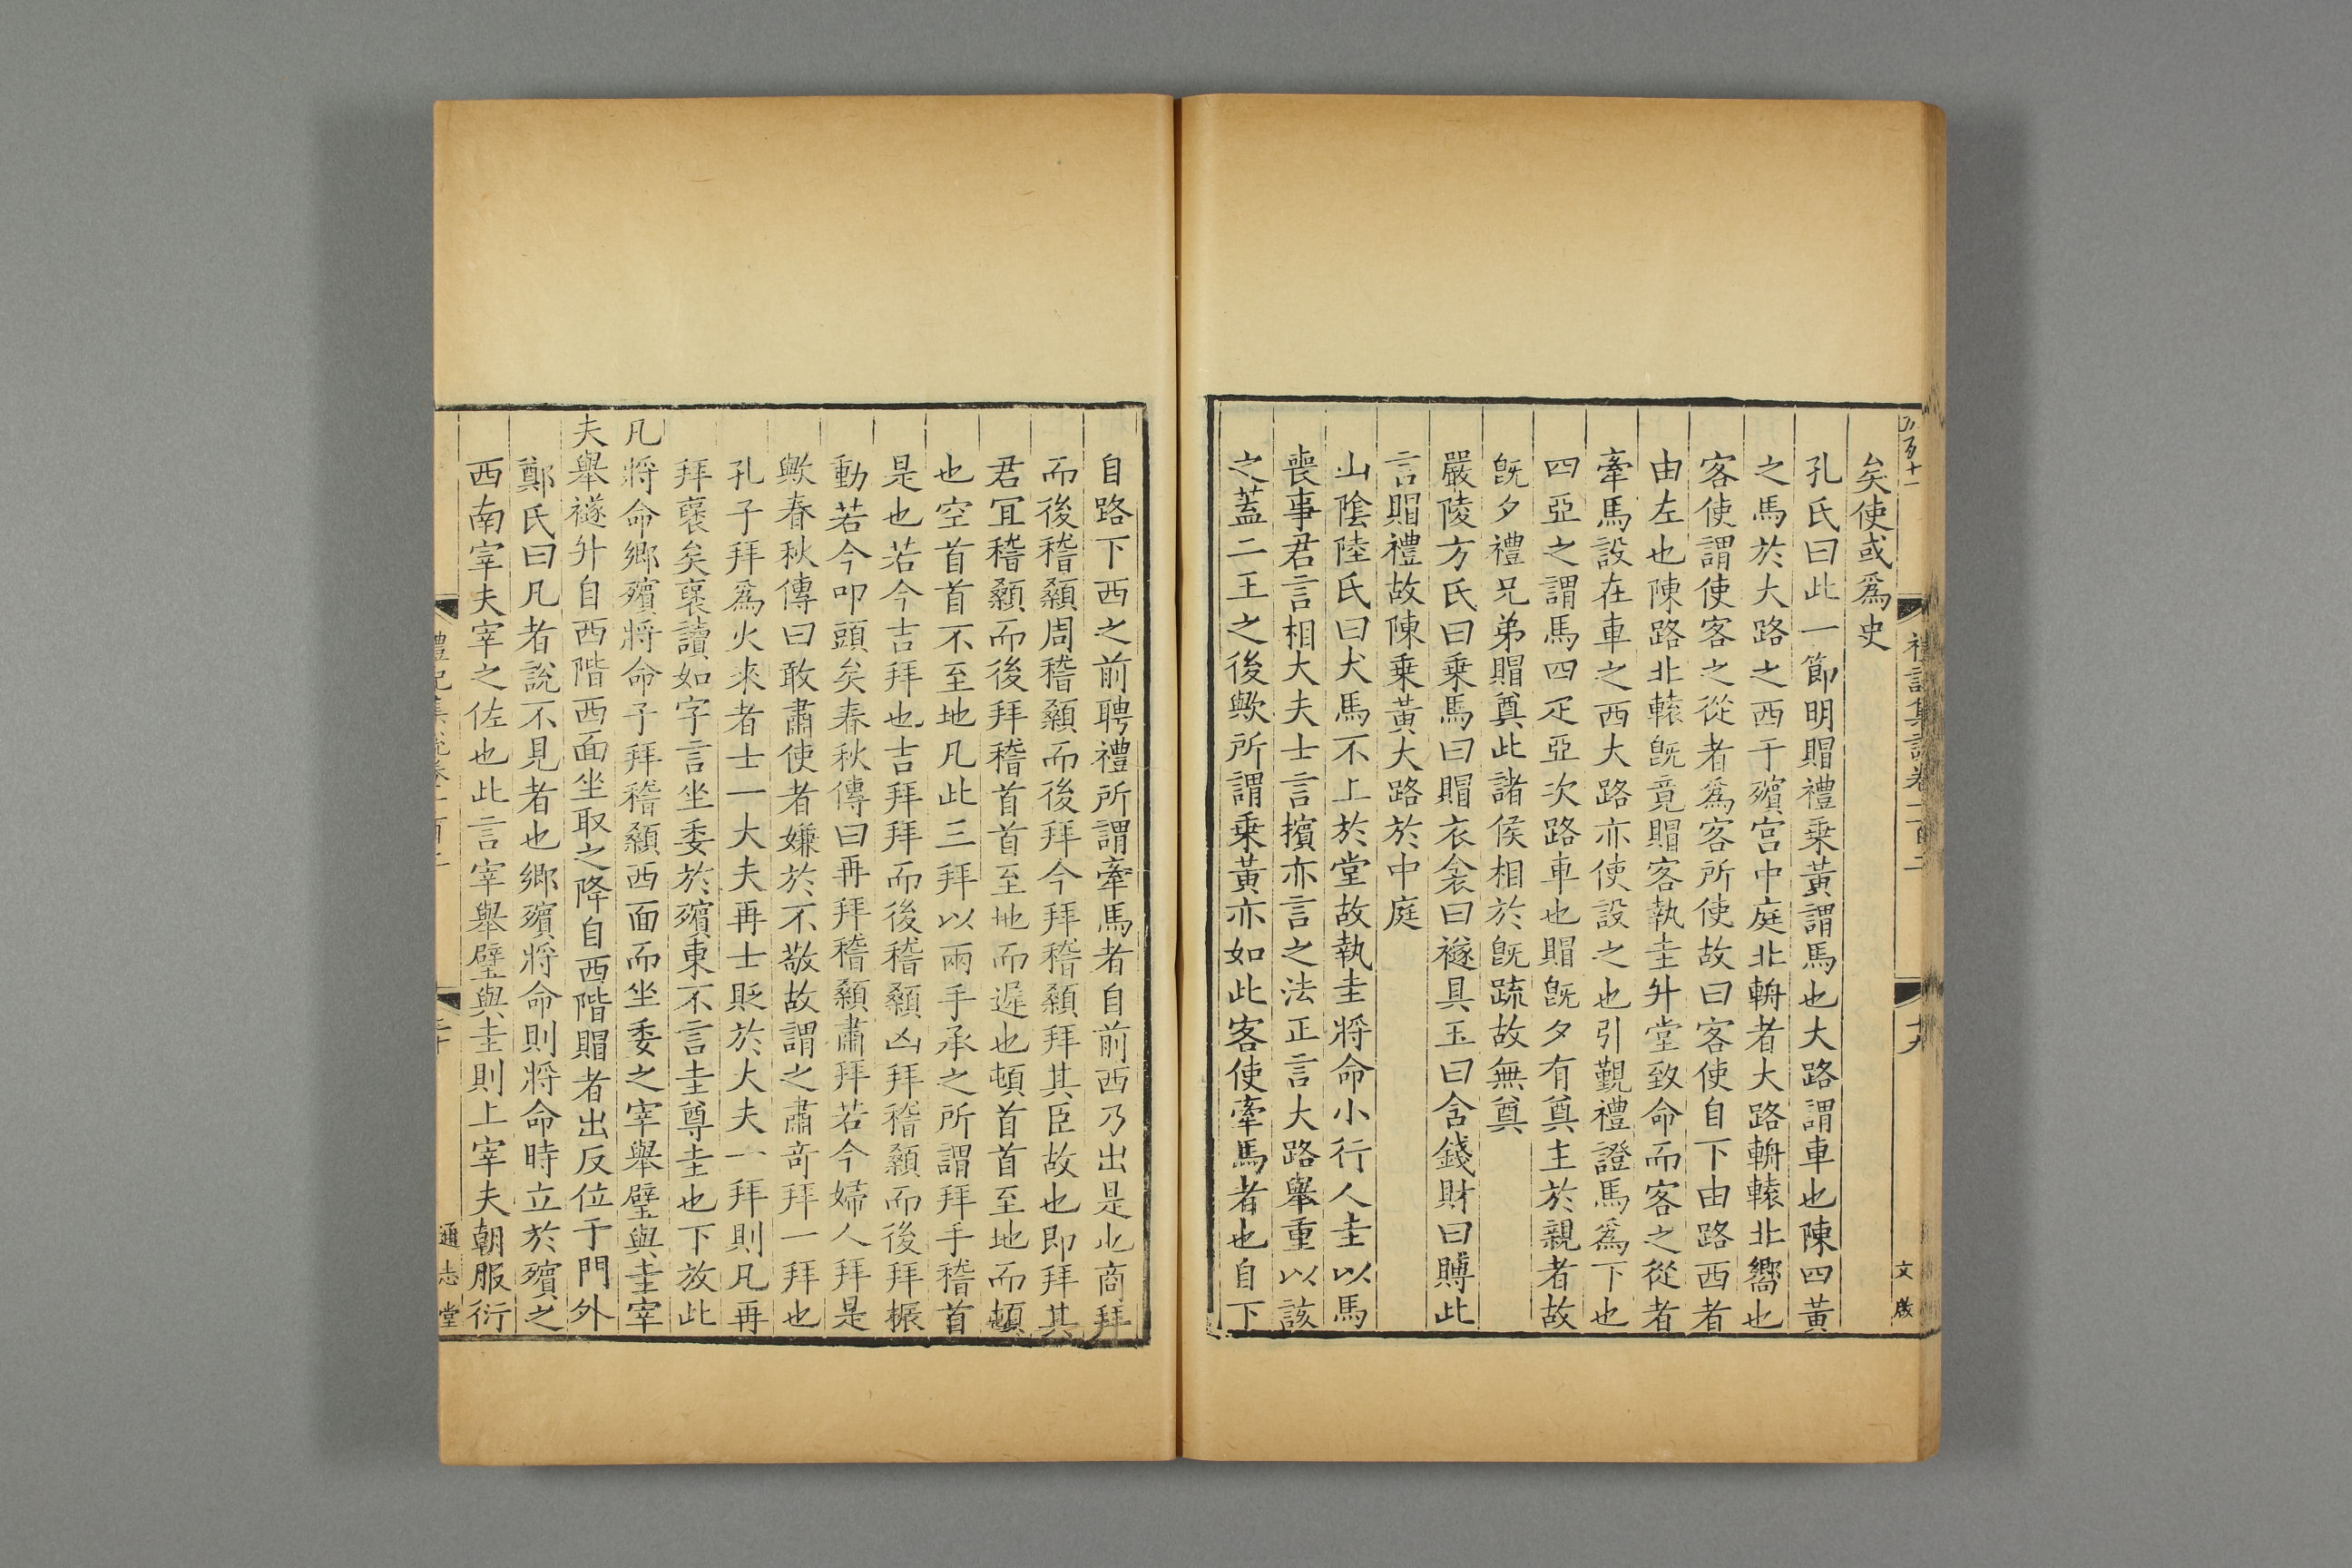 矣使或爲史
孔氏曰此一節明賵禮乗黃謂馬也大路謂車也陳四黃
之馬於大路之西于殯宫中庭北輈者大路輈轅北嚮也
客使謂使客之從者爲客所使故曰客使自下由路西者
由左也陳路北轅旣竟賵客執圭升堂致命而客之從者
牽馬設在車之西大路亦使設之也引覲禮證馬爲下也
四亞之謂馬四疋亞次路車也賵旣夕有奠主於親者故
旣夕禮兄弟賵奠此諸侯相於旣疏故無奠
嚴陵方氏曰乗馬曰賵衣衾曰襚具玉曰含錢財曰賻此
言賵禮故陳乗黃大路於中庭
山陰陸氏曰犬馬不上於堂故執圭將命小行人圭以馬
喪事君言相大夫士言擯亦言之法正言大路舉重以該
之蓋二王之後歟所謂乗黃亦如此客使牽馬者也自下
文成
自路下西之前聘禮所謂牽馬者自前西乃出是也商拜
而後稽顙周稽顙而後拜今拜稽顙拜其臣故也即拜其
君宜稽顙而後拜稽首首至地而遲也頓首首至地而頓
也空首首不至地凡此三拜以兩手承之所謂拜手稽首
是也若今吉拜也吉拜拜而後稽顙凶拜稽顙而後拜振
動若今叩頭矣春秋傳曰再拜稽顙肅拜若今婦人拜是
歟春秋傳曰敢肅使者嫌於不敬故謂之肅奇拜一拜也
孔子拜爲火來者士一大夫再士貶於大夫一拜則凡再
拜襃矣襃讀如字言坐委於殯東不言圭尊圭也下放此
凡將命鄉殯將命子拜稽顙西面而坐委之宰舉璧與圭宰
夫舉襚升自西階西面坐取之降自西階賵者出反位于門外
鄭氏曰凡者說不見者也鄉殯將命則將命時立於殯之
西南宰夫宰之佐也此言宰舉璧與圭則上宰夫朝服衍
通志堂